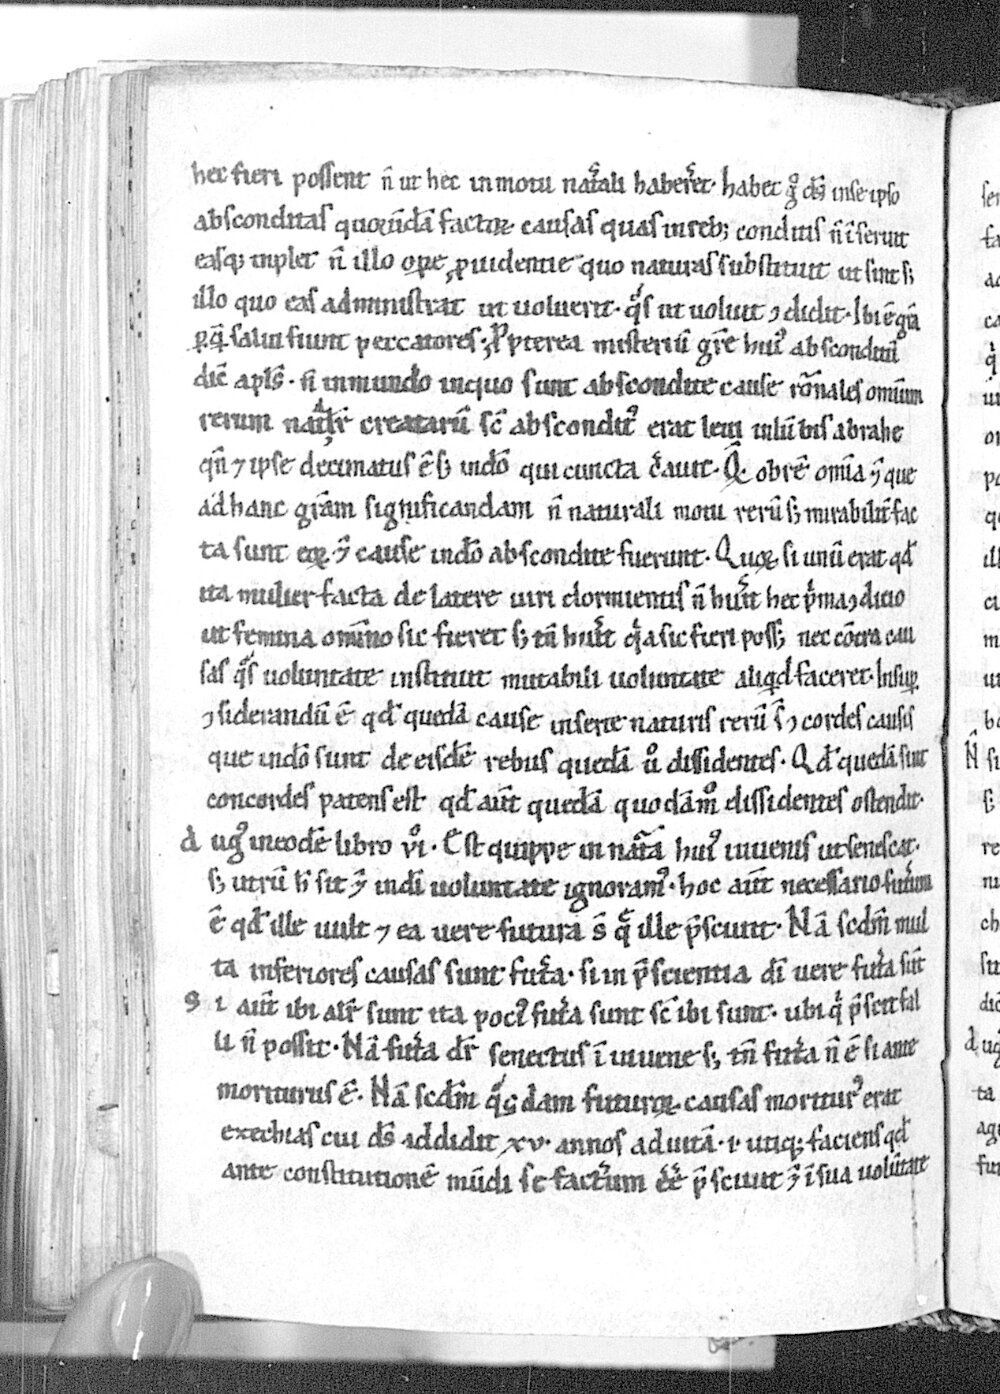 hec fieri possent n̄ ut hec in motu nat̄ali haber̄et· habet gͦ ds̄ in se ipso
absconditas quorūdā factoꝝ causas quas in reb; conditis n̄ ī seruit
easq; inplet n̄ illo oꝑe ꝓuidentie quo naturas substituit ut sint s;
illo quo eas administrat ut uoluerit· q̄s ut uoluit ɔdidit· Ibi ē grā
ꝑ qā salui fiunt peccatores· Propterea misteriū gr̄e huiꝰ absconditū
dic̄ apls̄· n̄ in mundo in quo sunt abscondite cause rōnales omniū
rerum nat̄lr̄ creatarū sc̄ absconditꝰ erat leui in lūbis abrahe
qn̄ ⁊ ipse decimatus ē s; in dō qui cuncta c̄auit· Q̄ obrē omīa ⁊ que
ad hanc grām significandam n̄ naturali motu rerū s; mirabilit̄ fac
ta sunt eoꝝ ⁊ cause in dō abscondite fuerunt· Quoꝝ si unū erat qd̄
ita mulier facta de latere uiri dormientis n̄ huit hec p̄ma ɔditio
ut femina omīno sic fieret s; tn̄ huit qͣ sic fieri poss; nec cōtra cau
sas qͣs uoluntate instituit mutabili uoluntate aliqd̄ faceret· Insuꝑ
ɔsiderandū ē qd̄ quedā cause inserte naturis rerū s̄ ɔcordes causis
que in dō sunt de eisdē rebus quedā uͦ dissidentes· Qd̄ quedā sint
concordes patens est qd̄ aūt quedā quodāmͦ dissidentes ostendit·
d ugꝰ in eodē libro vı̊· Est quippe in nāta huiꝰ iuuenis ut senescat·
s; utrū h̄ sit ⁊ in dī uoluntate ignoramꝰ· hoc aūt necessario futurum
ē qd̄ ille uult ⁊ ea uere futura s̄ q̄ ille p̄sciuit· Nā scdm̄ mul
ta inferiores causas sunt fut̄a· si in p̄scientia dī uere fut̄a sūt
S ı aūt ibi alr̄ sunt ita pociꝰ fut̄a sunt sc̄ ibi sunt· ubi qͥ p̄scit fal
li n̄ possit· Nā fut̄a dr̄ senectus ī iuuene s; tn̄ fut̄a n̄ ē si ante
moriturus ē· Nā scdm̄ qͣsdam futuroꝝ causas moriturꝰ erat
ezechias cui ds̄ addidit xv· annos ad uitā· i· utiq; faciens qd̄
ante constitutionē mūdi se facturum eē p̄sciuit ⁊ ī sua uolūtate